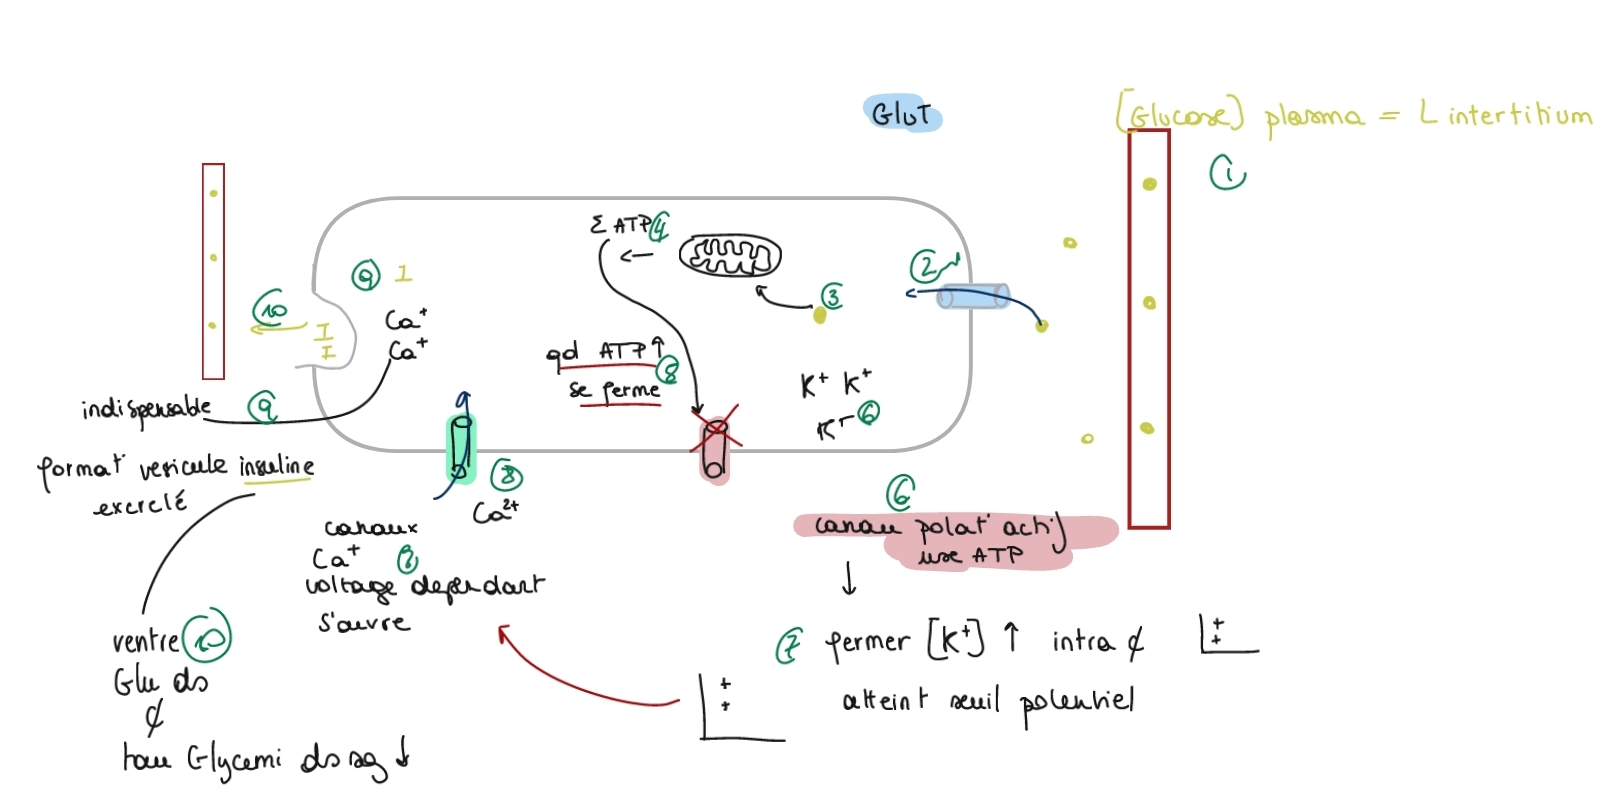 GluT
[Glucose] plasma = L intertitium
①
Σ ATP ④
② 
⑨ I
③
⑩
I
I
Ca⁺
Ca⁺
qd ATP ↑
⑧
se ferme
K⁺ K⁺
K⁺ ⑥
indispensable ⑨
format° vesicule insuline
excrelé
⑧
Ca²⁺
canaux
Ca⁺ ⑧
voltage dependant
s'ouvre
⑥
canau potat° actif
use ATP
↓
⑦ fermer [K⁺] ↑ intra ¢
+
+
atteint seuil potentiel
+
+
ventre ⑩
Glu ds
¢
taux Glycemi ds sg ↓